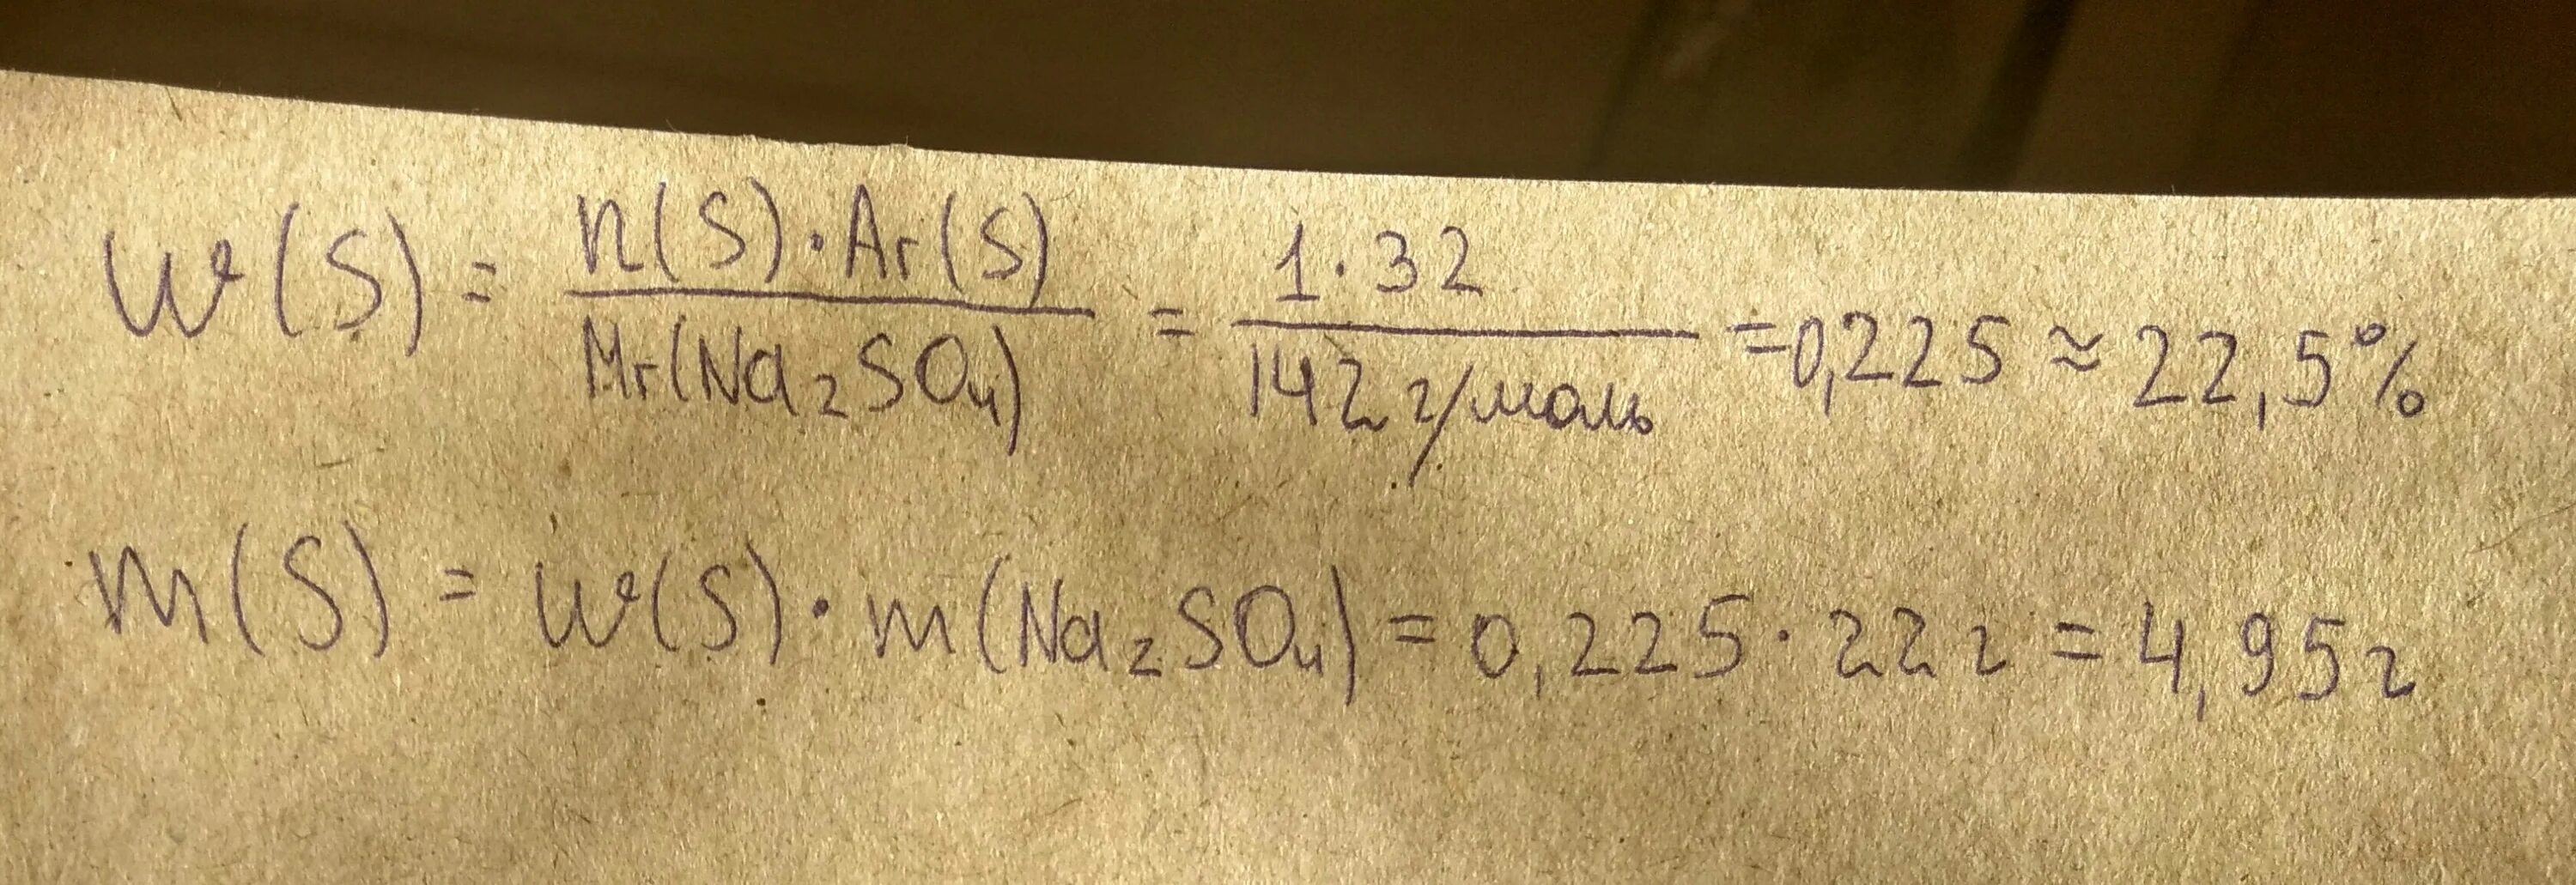 w(S) = n(S)·Ar(S) / Mr(Na₂SO₄) = 1·32 / 142 г/моль = 0,225 ≈ 22,5%
m(S) = w(S)·m(Na₂SO₄) = 0,225·22 г = 4,95 г